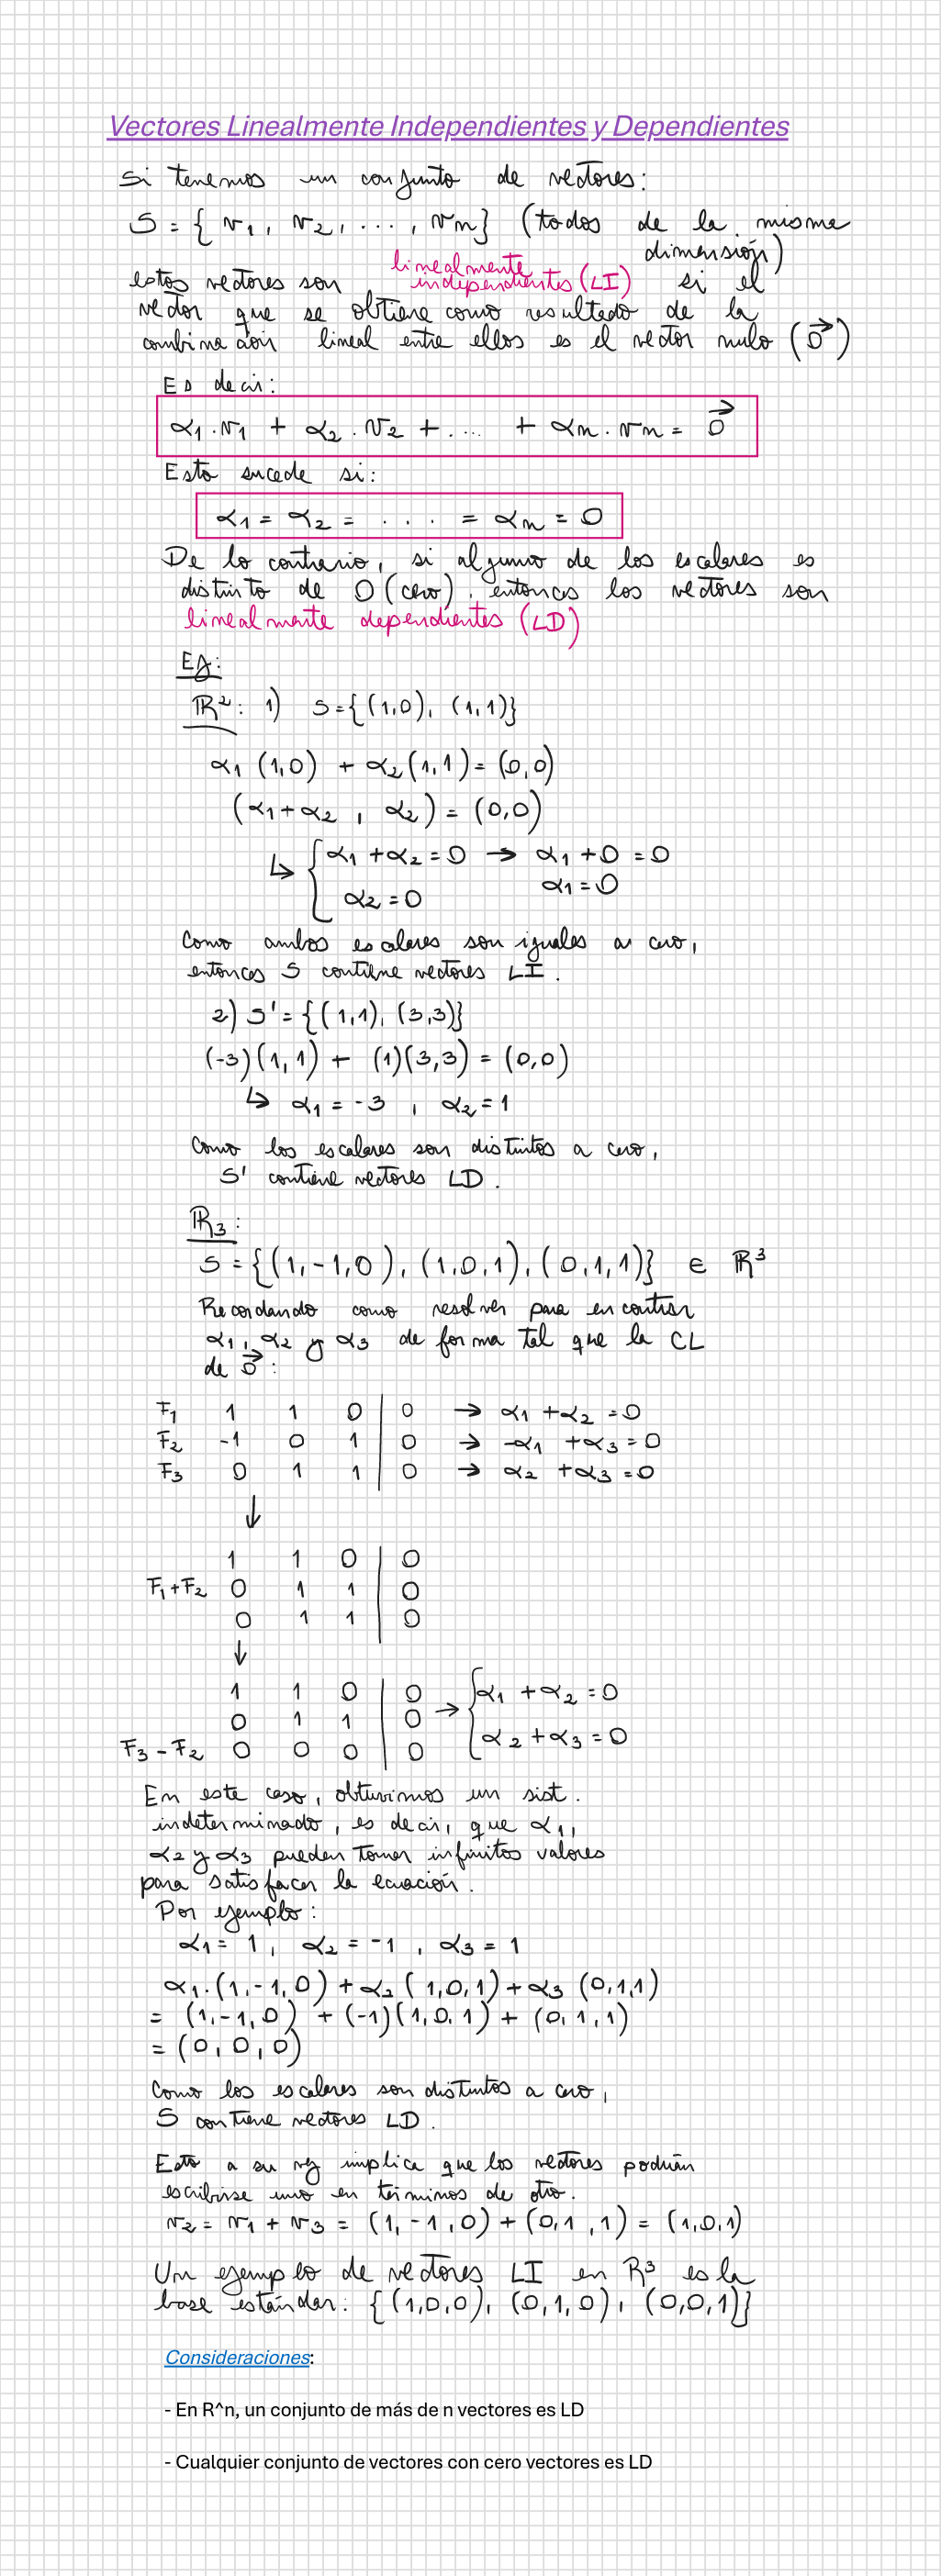 Vectores Linealmente Independientes y Dependientes
Si tenemos un conjunto de vectores:
S = { v₁, v₂, ..., vₙ} (todos de la misma
dimensión)
estos vectores son linealmente independientes (LI) si el
vector que se obtiene como resultado de la
combinación lineal entre ellos es el vector nulo (0⃗)
Es decir:
α₁.v₁ + α₂.v₂ + .... + αₙ.vₙ = 0⃗
Esto sucede si:
α₁ = α₂ = .... = αₙ = 0
De lo contrario, si alguno de los escalares es
distinto de 0 (cero), entonces los vectores son
linealmente dependientes (LD)
Ej:
ℝ²: 1) S={(1,0), (1,1)}
α₁ (1,0) + α₂(1,1) = (0,0)
(α₁+α₂, α₂) = (0,0)
↳ { α₁ + α₂ = 0 → α₁ + 0 = 0
α₂ = 0 α₁ = 0
Como ambos escalares son iguales a cero,
entonces S contiene vectores LI.
2) S' = {(1,1), (3,3)}
(-3)(1,1) + (1)(3,3) = (0,0)
↳ α₁ = -3, α₂ = 1
Como los escalares son distintos a cero,
S' contiene vectores LD.
ℝ₃:
S = {(1,-1,0), (1,0,1), (0,1,1)} ∈ ℝ³
Recordando como resolver para encontrar
α₁, α₂ y α₃ de forma tal que la CL
de 0⃗:
F₁ 1 1 0 | 0 → α₁ + α₂ = 0
F₂ -1 0 1 | 0 → -α₁ + α₃ = 0
F₃ 0 1 1 | 0 → α₂ + α₃ = 0
↓
1 1 0 | 0
F₁+F₂ 0 1 1 | 0
0 1 1 | 0
↓
1 1 0 | 0 → { α₁ + α₂ = 0
0 1 1 | 0 α₂ + α₃ = 0
F₃ - F₂ 0 0 0 | 0
En este caso, obtuvimos un sist.
indeterminado, es decir, que α₁,
α₂ y α₃ pueden tomar infinitos valores
para satisfacer la ecuación.
Por ejemplo:
α₁ = 1, α₂ = -1, α₃ = 1
α₁.(1,-1,0) + α₂(1,0,1) + α₃(0,1,1)
= (1,-1,0) + (-1)(1,0,1) + (0,1,1)
= (0,0,0)
Como los escalares son distintos a cero,
S contiene vectores LD.
Esto a su vez implica que los vectores podrían
escribirse uno en términos de otro.
v₂ = v₁ + v₃ = (1,-1,0) + (0,1,1) = (1,0,1)
Un ejemplo de vectores LI en R³ es la
base estándar: {(1,0,0), (0,1,0), (0,0,1)}
Consideraciones:
- En R^n, un conjunto de más de n vectores es LD
- Cualquier conjunto de vectores con cero vectores es LD